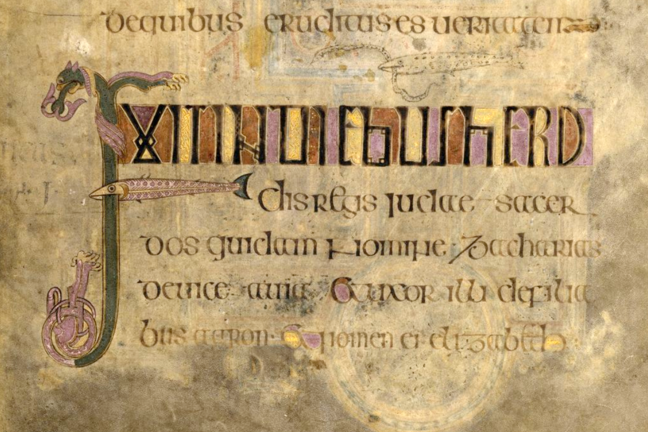 dequibus eruditus es ueritatem
FUIT IN DIEBUS HERO
dis regis iudae sacer
dos quidam nomine zacharias
deuice auia & uxor illi defilia
bus aaron & nomen ei elizabeth